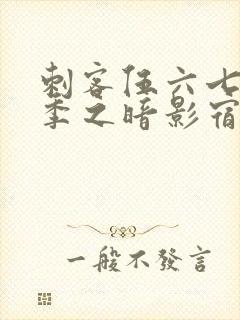 刺客伍六七
季之暗影宿
一般不發言